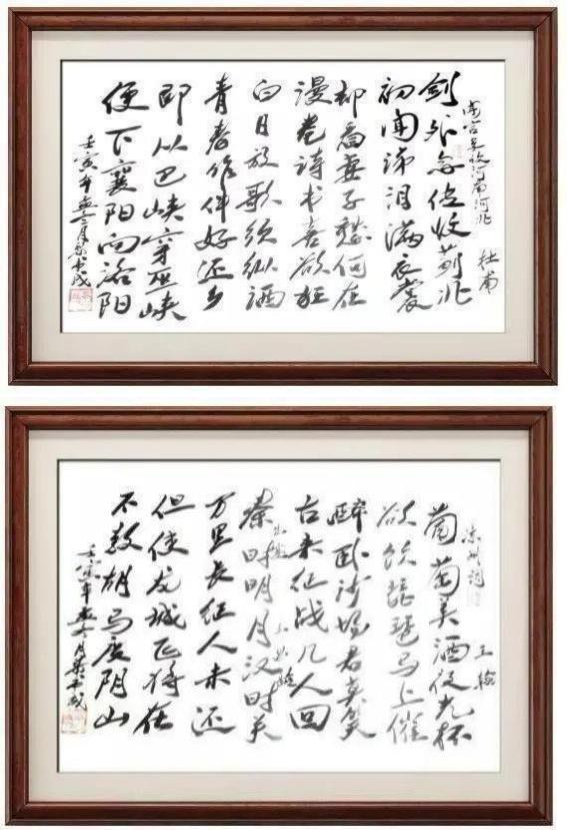 闻官军收河南河北 杜甫
剑外忽传收蓟北
初闻涕泪满衣裳
却看妻子愁何在
漫卷诗书喜欲狂
白日放歌须纵酒
青春作伴好还乡
即从巴峡穿巫峡
便下襄阳向洛阳
壬寅年
凉州词 王翰
葡萄美酒夜光杯
欲饮琵琶马上催
醉卧沙场君莫笑
古来征战几人回
出塞 王昌龄
秦时明月汉时关
万里长征人未还
但使龙城飞将在
不教胡马度阴山
壬寅年